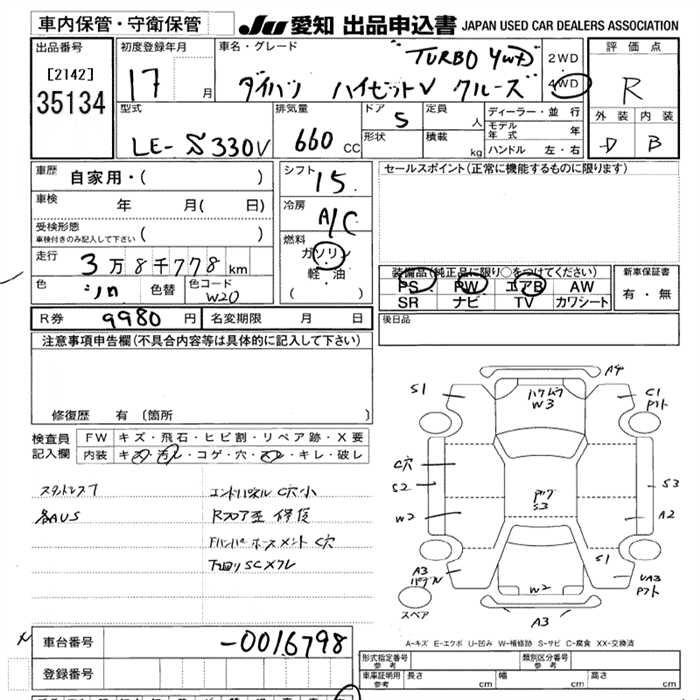 車内保管・守衛保管
JU 愛知 出品申込書 JAPAN USED CAR DEALERS ASSOCIATION
出品番号
[2142]
35134
初度登録年月
17 月
車名・グレード
"TURBO 4WD"
ダイハツ ハイゼットV クルーズ
2WD
4WD
評価点
R
外装 内装
D B
型式
LE-S330V
排気量
660 CC
ドア
5
形状
定員
人
積載
kg
ディーラー・並行
モデル年式 年
ハンドル 左・右
車歴
自家用・( )
車検 年 月( 日)
受検形態
車検付きのみ記入して下さい ( )
走行 3万8千778 km
色 シロ 色替 色コード W20
シフト
I5
冷房
A/C
燃料
ガソリン
・
軽油
( )
セールスポイント(正常に機能するものに限ります)
装備品(純正品に限り○をつけてください)
PS PW エアB AW
SR ナビ TV カワシート
新車保証書
有・無
後日品
R券 9980円 名変期限 月 日
注意事項申告欄(不具合内容等は具体的に記入して下さい)
修復歴 有 [箇所 ]
検査員記入欄
FW キズ・飛石・ヒビ割・リペア跡・X要
内装 キズ・汚レ・コゲ・穴・スレ・キレ・破レ
スタットレス7
各AUS
エンドパネル C穴小
Rフロア歪 修復
Fバンパーホースメント C穴
下回りSCメクレ
A4
S1
C1
W3
C穴
S2
W2
S3
S3
A2
A3
S1
UA3
W2
A3
スペア
A-キズ E-エクボ U-凹み W-補修跡 S-サビ C-腐食 XX-交換済
車台番号 -0016798
登録番号
形式指定番号
参考
類別区分番号
参考
車庫証明用
参考
長さ cm 幅 cm 高さ cm